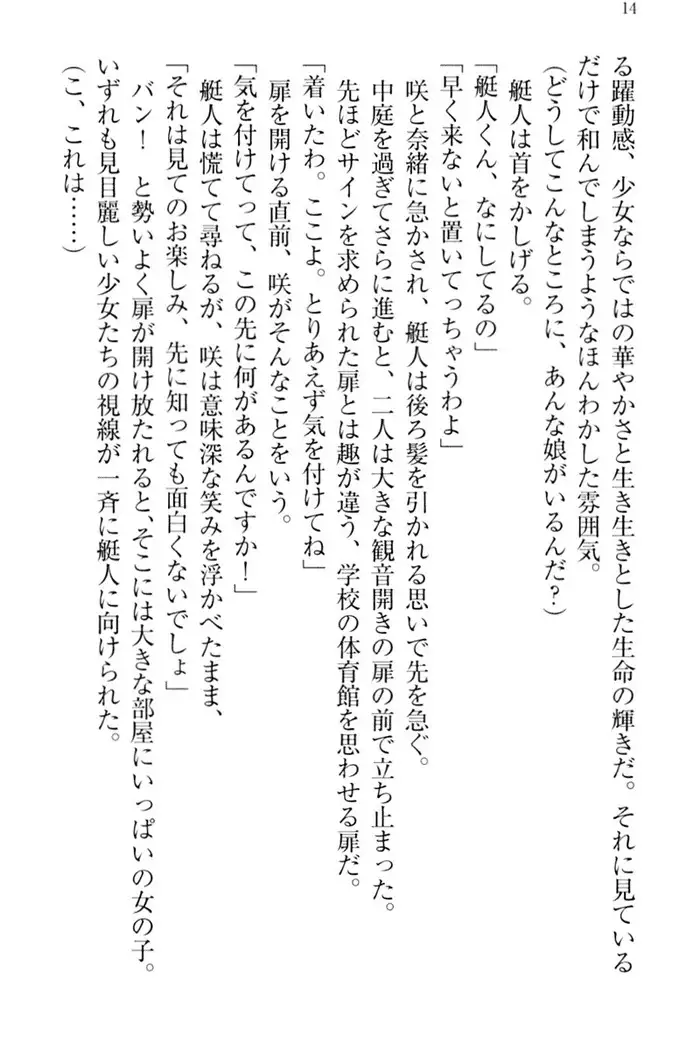 14
る躍動感、少女ならではの華やかさと生き生きとした生命の輝きだ。それに見ている
だけで和んでしまうようなほんわかした雰囲気。
(どうしてこんなところに、あんな娘がいるんだ?)
艇人は首をかしげる。
「艇人くん、なにしてるの」
「早く来ないと置いてっちゃうわよ」
咲と奈緒に急かされ、艇人は後ろ髪を引かれる思いで先を急ぐ。
中庭を過ぎてさらに進むと、二人は大きな観音開きの扉の前で立ち止まった。
先ほどサインを求められた扉とは趣が違う、学校の体育館を思わせる扉だ。
「着いたわ。ここよ。とりあえず気を付けてね」
扉を開ける直前、咲がそんなことをいう。
「気を付けてって、この先に何があるんですか!」
艇人は慌てて尋ねるが、咲は意味深な笑みを浮かべたまま、
「それは見てのお楽しみ、先に知っても面白くないでしょ」
バン! と勢いよく扉が開け放たれると、そこには大きな部屋にいっぱいの女の子。
いずれも見目麗しい少女たちの視線が一斉に艇人に向けられた。
(こ、これは……)